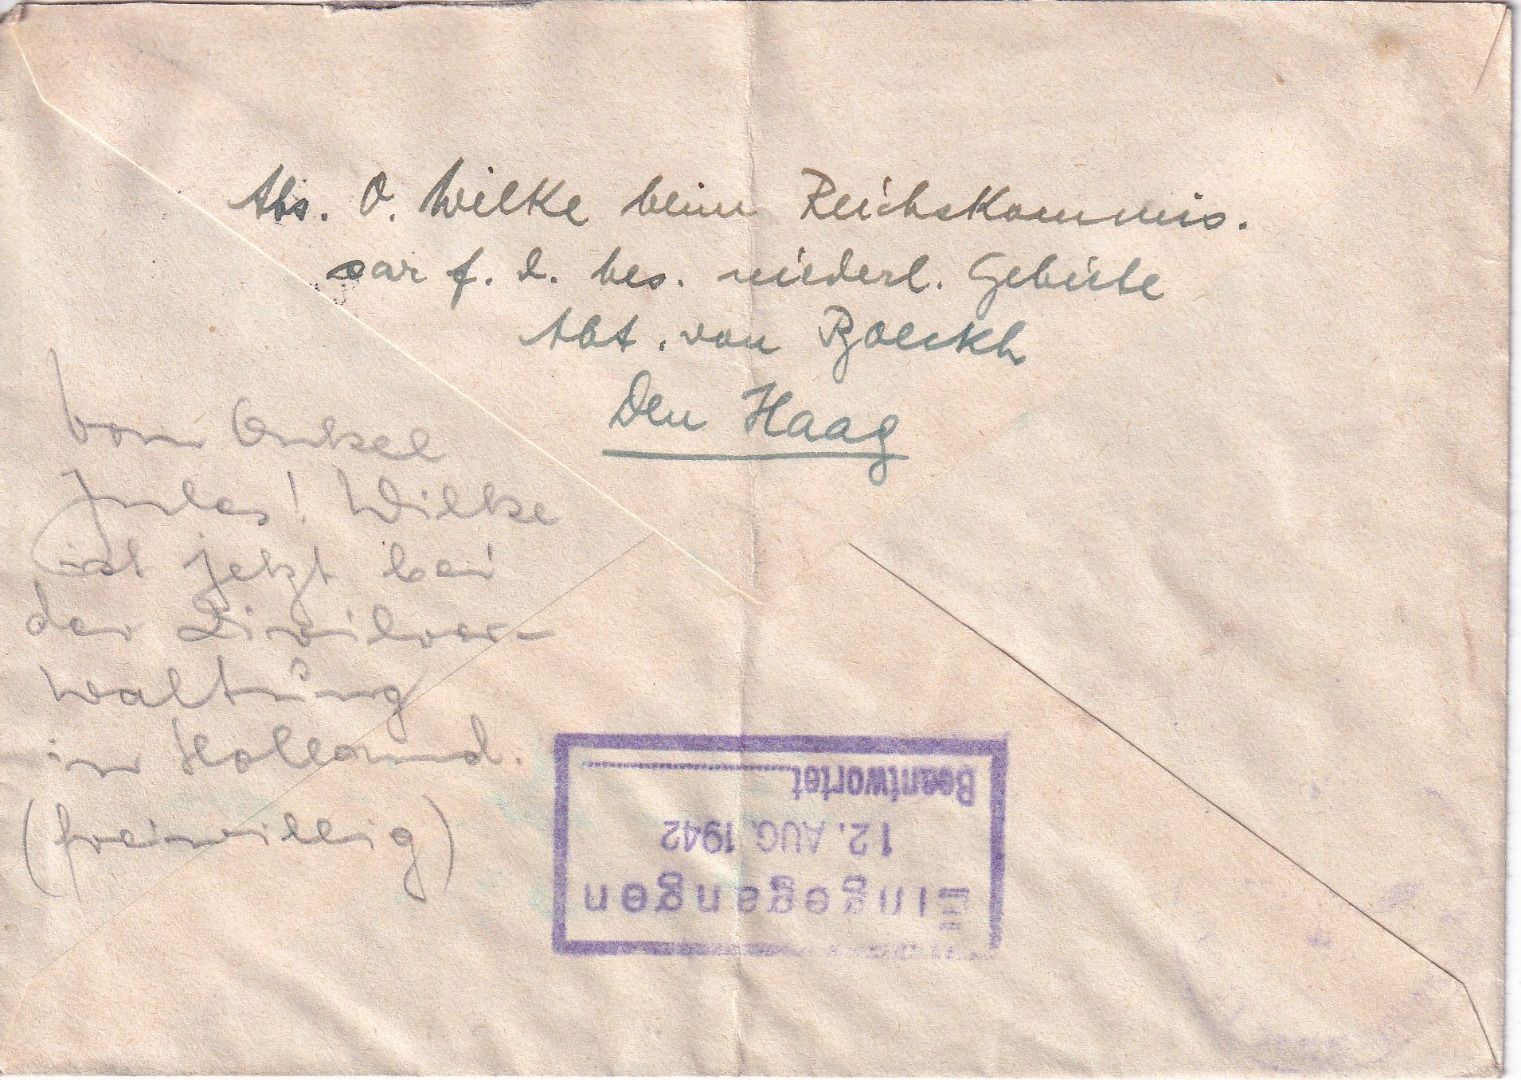 Abs. O. Wilke beim Reichskommis.
sar f. d. bes. niederl. Gebiete
Abt. von Boeckh
Den Haag
vom Onkel
Jules! Wilke
ist jetzt bei
der Zivilver-
waltung
in Holland.
(freiwillig)
Eingegangen
12. AUG. 1942
Beantwortet